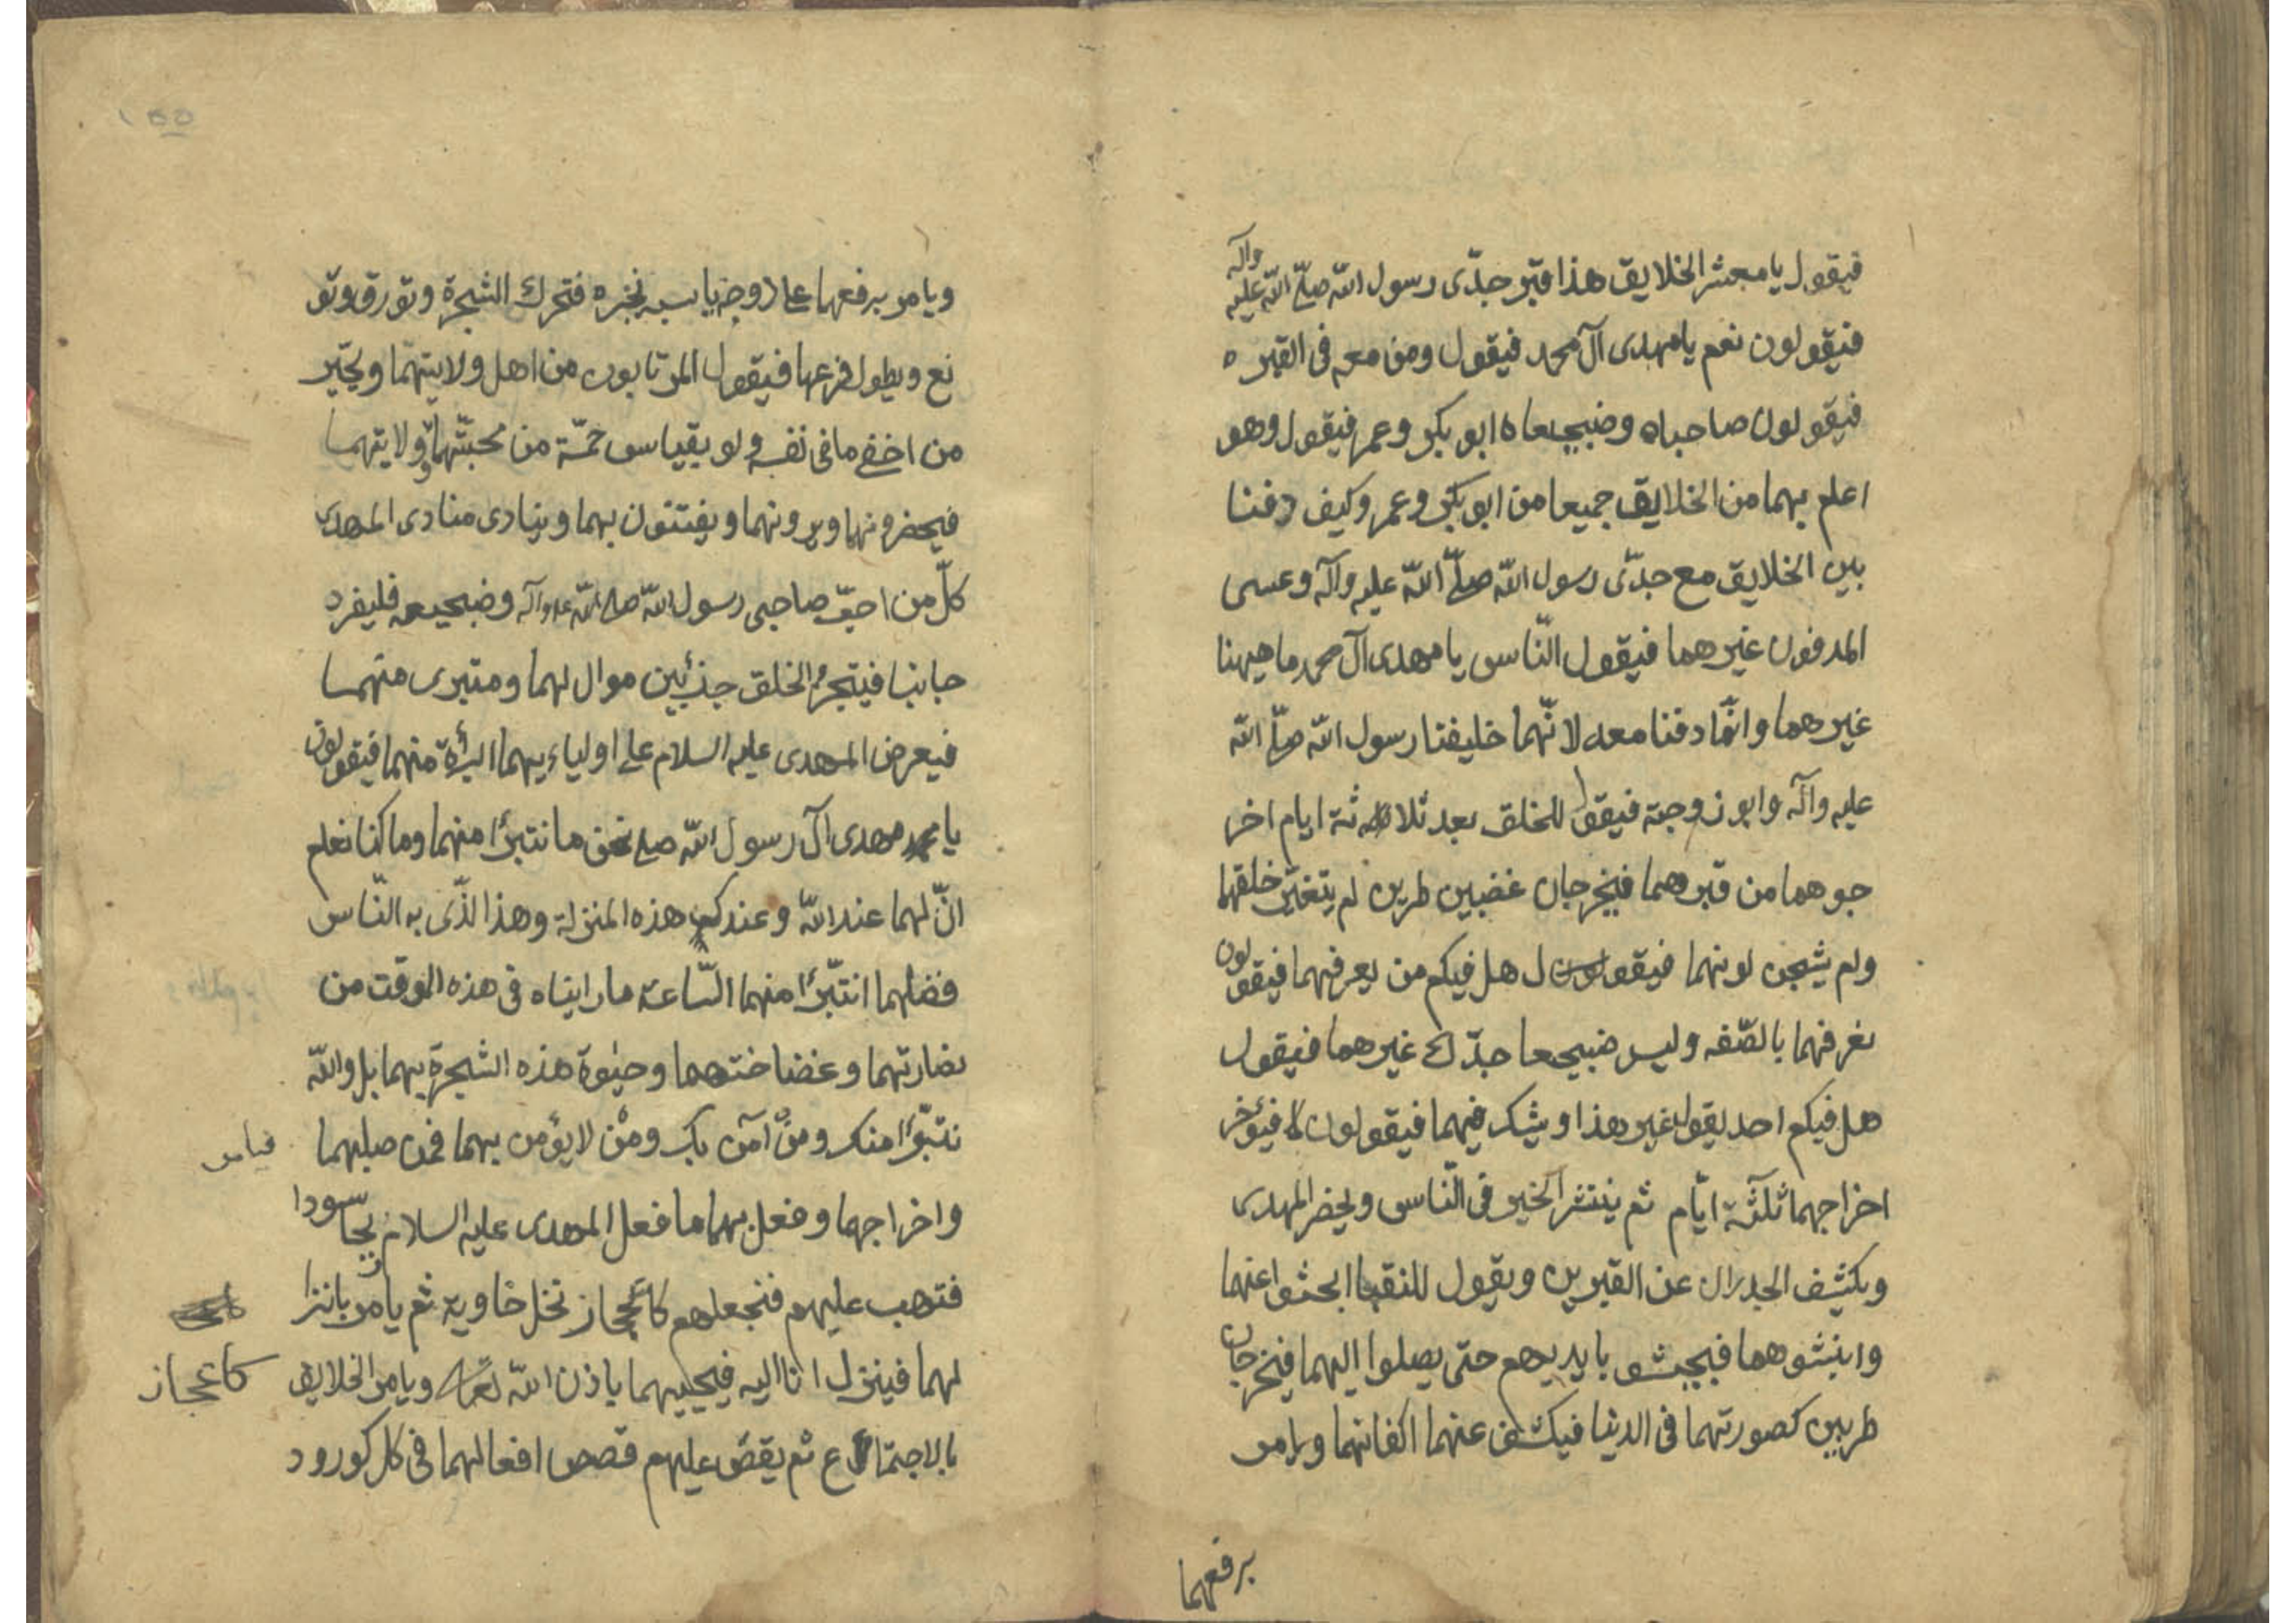 فيقول يا معشر الخلايق هذا قبر جدّى رسول اللّه صلّى اللّه عليه وآله
فيقولون نعم يا مهدى آل محمد فيقول ومن معه فى القبر ه
فيقولون صاحباه وضجيعاه ابو بكر وعمر فيقول وهو
اعلم بهما من الخلايق جميعا من ابو بكر وعمر وكيف دفنا
بين الخلايق مع جدّى رسول اللّه صلّى اللّه عليه وآله وعسى
المدفون غيرهما فيقول النّاس يا مهدى آل محمد ما هيهنا
غيرهما وانّما دفنا معه لانّهما خليفتا رسول اللّه صلّى اللّه
عليه وآله وابو زوجته فيقول للخلق بعد ثلاثة ايام اخر
جوهما من قبرهما فيخرجان غضبين طرين لم يتغيّر خلقهما
ولم يشجن لونهما فيقول هل فيكم من يعرفهما فيقولون
نعرفهما بالصّفه وليس ضجيعا جدّك غيرهما فيقول
هل فيكم احد يقول غير هذا او يشك فيهما فيقولون لا فيؤخر
اخراجهما ثلثة ايّام ثم ينتشر الخبر فى النّاس ويحضر المهدى
ويكشف الجدران عن القبرين ويقول للنقبا ابحثوا عنهما
وانبشوهما فيبحثو بايديهم حتّى يصلوا اليهما فيخرجان
طريين كصورتهما فى الدنيا فيكشف عنهما اكفانهما ويامر
برفعهما
١٥٥
ويامر برفعهما على دوحة يابسة نخره فتحرك الشجرة وتورق وتو
نع ويطول فرعها فيقول المرتابون من اهل ولايتهما ويخبر
من اخفى ما فى نفسه ولو بقياس حمّة من محبّتهما وولايتهما
فيحضرونهما ويرونهما ويفتنون بهما وينادى منادى المهدى
كلّ من احبّ صاحبى رسول اللّه صلى اللّه عليه وآله وضجيعه فليفرد
جانبا فيتجزّء الخلق جزئين موال لهما ومتبرى منهما
فيعرض المهدى عليه السلام على اوليائهما البرأة منهما فيقولون
يا مهدى آل رسول اللّه صلع نحن ما نتبرّأ منهما وما كنا نعلم
انّ لهما عند اللّه وعندكم هذه المنزلة وهذا الّذى به النّاس
فضلهما انتبّرأ منهما السّاعة ما رايناه فى هذه الوقت من
نضارتهما وغضاضتهما وحيوة هذه الشجرة بهما بل واللّه
نتبّرأ منك ومن آمن بك ومن لا يؤمن بهما فمن صلبهما
فيامر
واخراجهما وفعل بهما ما فعل المهدى عليه السلام ريحا سودا
فتهب عليهم فتجعلهم كاعجاز نخل خاوية ثم يامر بانزا
لهما فينزل انا اليه فيحييهما باذن اللّه تعالى ويامر الخلايق
كاعجاز
بالاجتماع ثم يقصّ عليهم قصص افعالهما فى كل كور ود